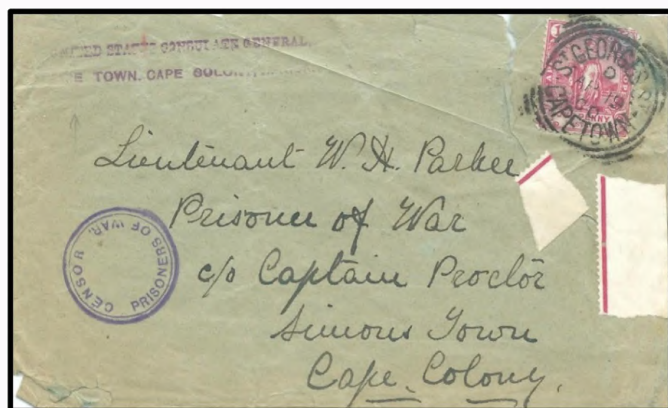 UNITED STATES CONSULATE GENERAL.
TOWN, CAPE
ST GEORGE'S
AP 19
CAPETOWN
Lieutenant W. H. Parker
Prisoner of War
c/o Captain Proctor
Simons Town
Cape Colony.
CENSOR PRISONERS OF WAR.